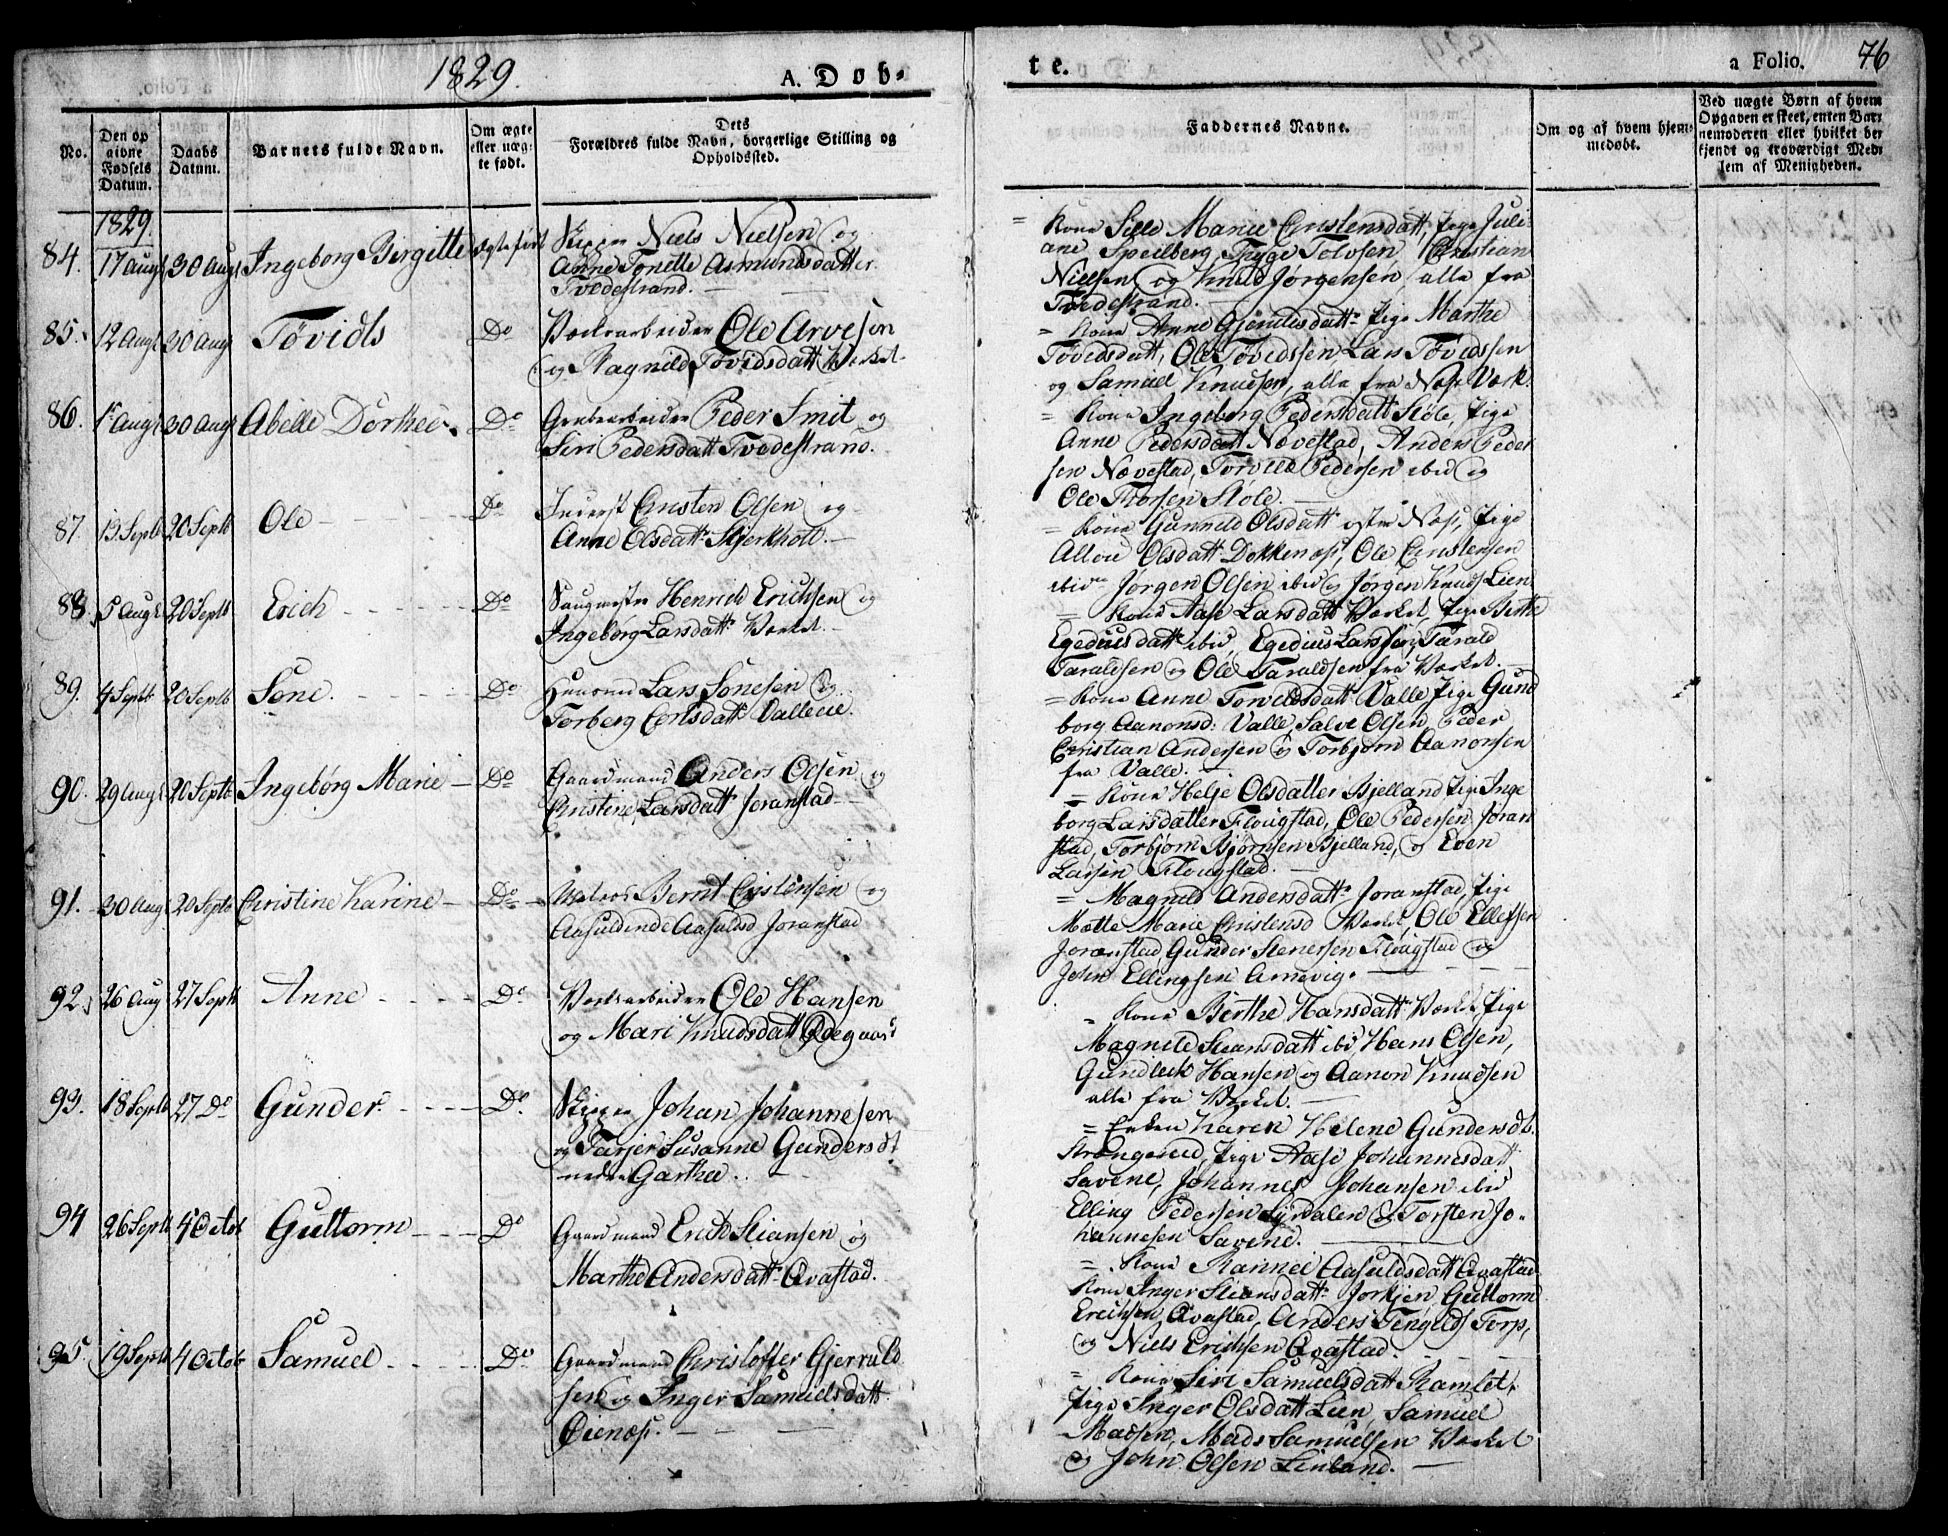 1829. A. Døb-
te. a Folio. 76
No.
Den op
givne
Fødsels
Datum.
Daabs
Datum.
Barnets fulde Navn.
Om ægte
eller uæg-
te født.
Dets
Forældres fulde Navn, borgerlige Stilling og
Opholdssted.
Faddernes Navne.
Om og af hvem hjem-
medøbt.
Ved uægte Børn af hvem
Opgaven er skeet, enten Bar-
nemoderen eller hvilket be-
kjendt og troværdigt Med-
lem af Menigheden.
1829
84. 17 Augt 30 Augt Ingeborg Bergitte Ægtefødt Skipper Niels Nielsen og
Anne Tonette Asmundsdatter
Tvedestrand.
= Kone Sille Marie Christensdatt, Pige Juli-
ane Speilberg, Tryge Tolvsen, Christian
Nielsen og Knud Jørgensen alle fra
Tvedestrand.
85. 12 Augt 30 Augt Tøvids Do Værksarbeider Ole Arvesen
og Ragnild Tøvidsdatt Værket
= Kone Anne Gjeruldsdatt Pige Marthe
Tøvidsdatt, Ole Tøvidssen Lars Tøvidssen
og Samuel Knudsen, alle fra Næs Værk.
86. 1 Augt 30 Augt Abelle Dorthee Do Grubearbeider Peder Smit og
Siri Pedersdatt Tvedestrand.
= Kone Ingeborg Pedersdatt Støle, Pige
Anne Pedersdatt Nævestad, Anders Peder-
sen Nævestad, Torvild Pedersen ibid og
Ole Thorsen Støle.
87. 13 Septb 20 Septb Ole Do Inderst Christen Olsen og
Anne Olsdatt Skjerkholt.
= Kone Gunnild Olsdatt østre Næs, Pige
Allou Olsdatt Dokkenæs, Ole Christensen
ibid Jørgen Olsen ibid og Jørgen Knuds Lien
88. 5 Augt 20 Septb Erich Do Saugmester Henrich Erichsen og
Ingebørg Larsdatt Værket.
= Kone Aase Larsdatt Værket, Pige Berthe
Egediusdatt ibid, Egedius Larssen, Tarald
Taraldsen og Ole Taraldsen fra Værket.
89. 4 Septb 20 Septb Sone. Do Huusmd Lars Sonesen og
Torberg Carlsdatt Valleeie.
= Kone Anne Torvildsdatt Valle, Pige Gund-
borg Aanonsd: Valle, Salve Olsen, Peder
Christian Andersen og Torbjørn Aanonsen
fra Valle.
90. 29 Augt 20 Septb Ingebørg Marie Do Gaardmand Anders Olsen og
Christine Larsdatt Joranstad
= Kone Helje Olsdatter Bjelland Pige Inge-
borg Larsdatter Flougstad, Ole Pedersen Joran-
stad, Torbjørn Bjørnsen Bjelland, og Even
Larsen Flougstad.
91. 30 Augt 20 Septb Christine Karine Do Matros Bernt Christensen og
Aasuldine Aasuldsd Joranstad
= Magnild Andersdatt Joranstad, Pige
Mætte Marie Christensd Værket, Ole Ellefsen
Joranstad, Gunder Stenersen Flougstad og
John Ellingsen Arnevig.
92. 26 Aug 27 Septb Anne Do Værksarbeider Ole Hansen
og Mari Knudsdatt Ødegaard
= Kone Berthe Hansdatt Værket, Pige
Magnild Steansdatt ibid, Hans Olsen,
Gundleik Hansen og Aanon Knudsen
alle fra Værket.
93. 18 Septb 27 Do Gunder. Do Skipper Johan Johannesen
og Tarjer Susanne Gundersdt
nedre Garthe.
= Enken Karen Helene Gundersdt
Strengered, Pige Aase Johannesdatt
Savene, Johannes Johansen ibid
Elling Pedersen Lyrdalen og Torsten Jo-
hannesen Savene.
94 26 Septb 4 Octob Guttorm Do Gaardmand Erich Stiansen og
Marthe Andersdatt Qvastad.
= Kone Rannei Aasuldsdatt Qvastad
Kone Inger Stiansdatt Jorkjen, Guttorm
Erichsen Qvastad, Anders Tengelds Torp,
og Niels Erichsen Qvastad.
95. 19 Septb 4 Octob Samuel Do Gaardmand Christoffer Gjeruld-
sen og Inger Samuelsdatt
Øienæs.
= Kone Siri Samuelsdatt Ramlet,
Pige Inger Olsdatt Lien, Samuel
Madsen, Mads Samuelsen Værket
og John Olsen Linland.